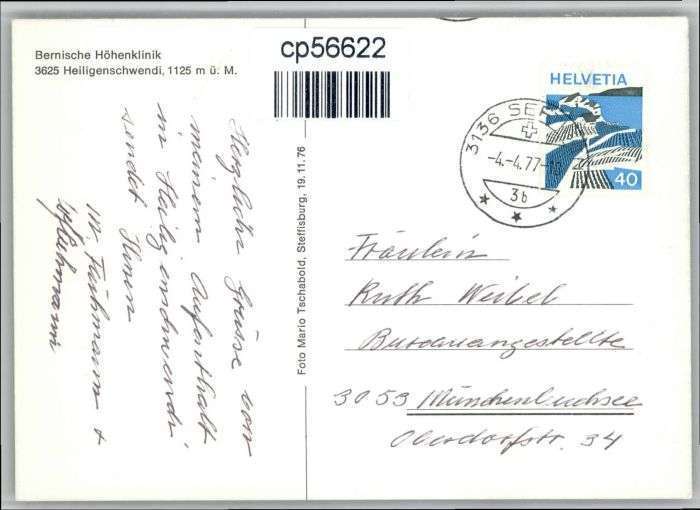 Bernische Höhenklinik
3625 Heiligenschwendi, 1125 m ü. M.
cp56622
HELVETIA
40
3136 SEF
-4.-4.77-
3b
Foto Mario Tschabold, Steffisburg, 19.11.76
Herzliche Grüsse von
meinem Aufenthalt
in Heiligenschwendi
sendet Ihnen
M. Fuhrmann +
Fräulein
Ruth Weibel
Bureauangestellte
3053 Münchenbuchsee
Oberdorfstr. 34